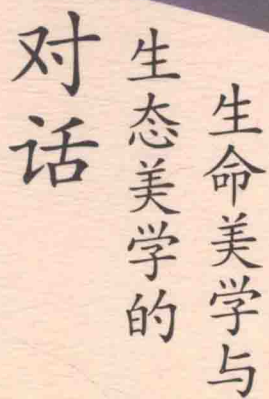 生命美学与
生态美学的
对话